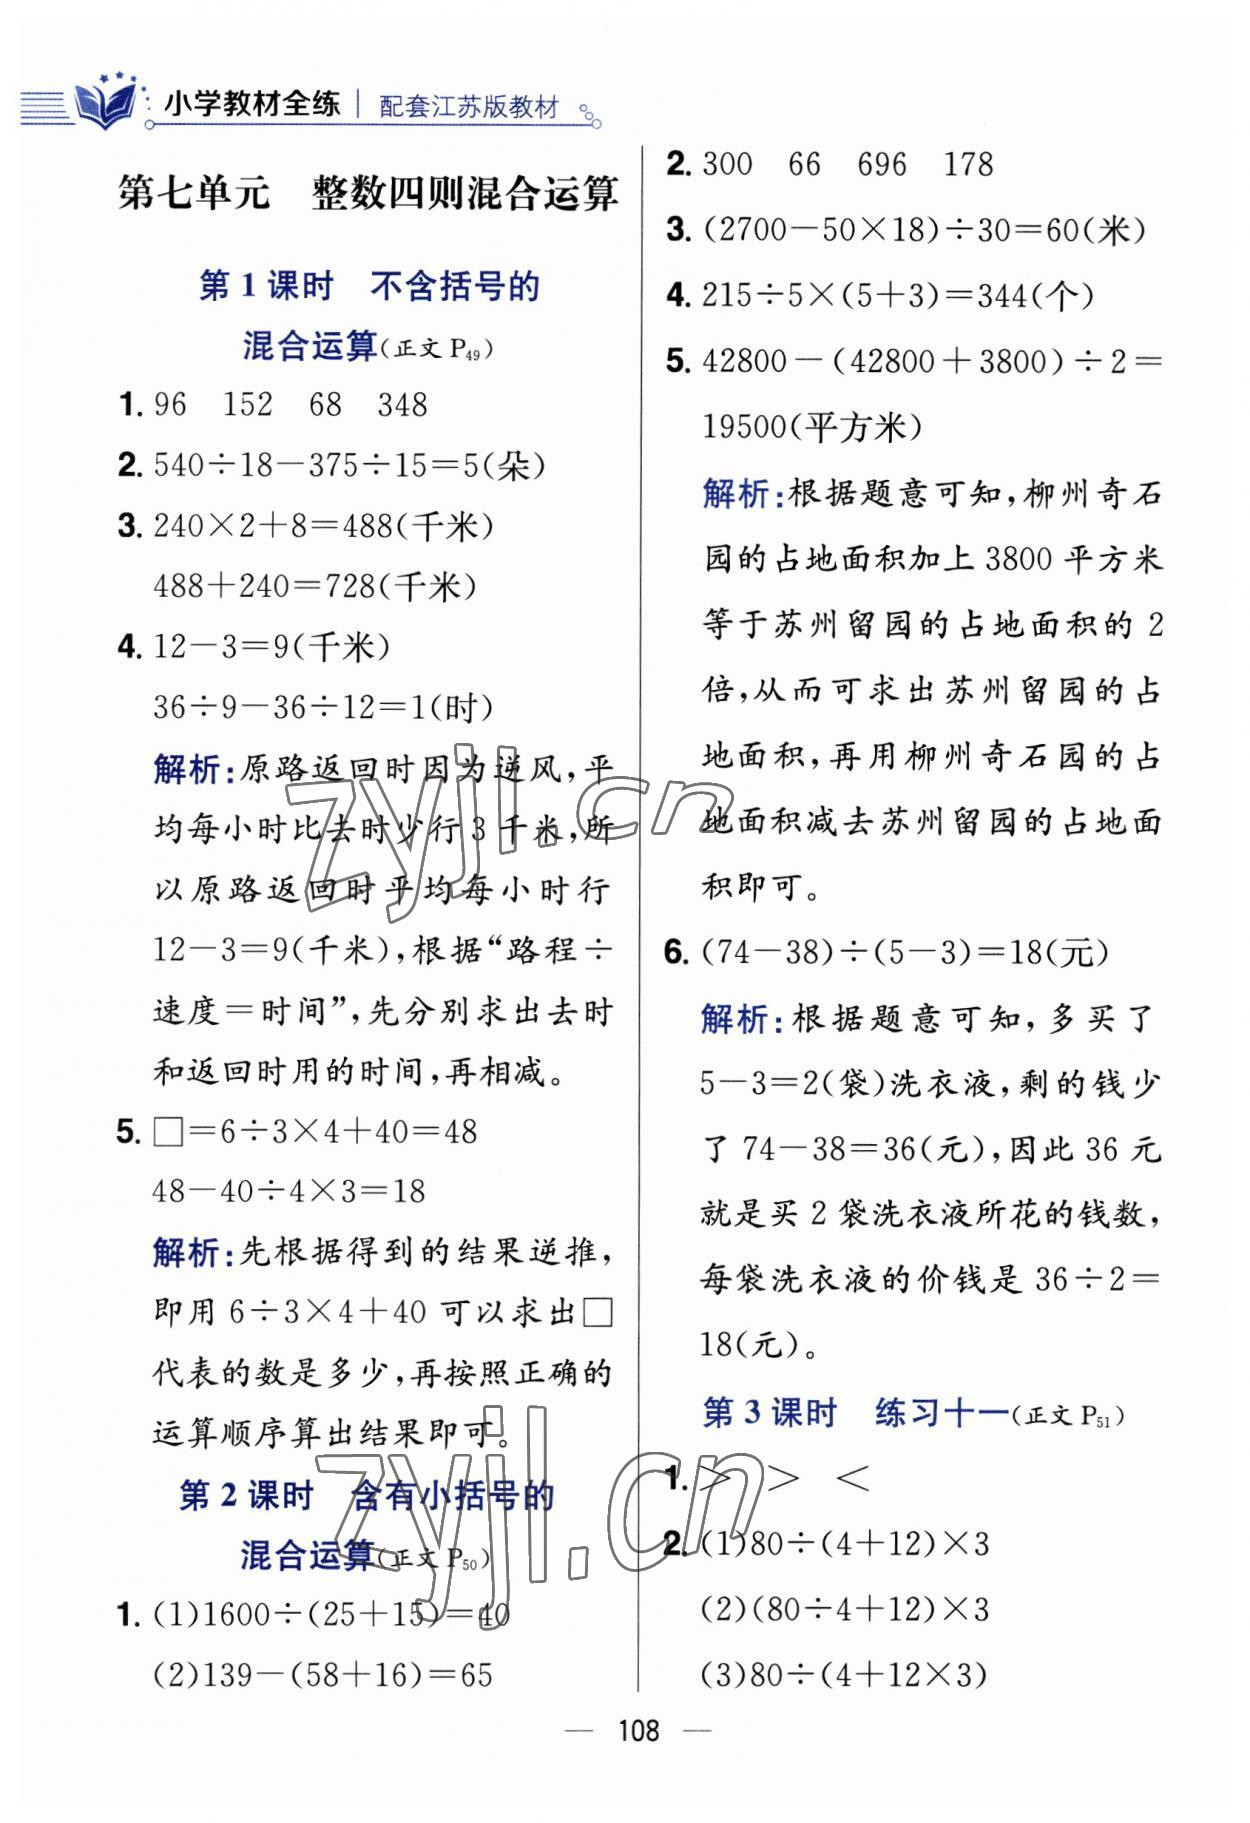 小学教材全练 配套江苏版教材
第七单元 整数四则混合运算
第1课时 不含括号的
混合运算(正文 P49)
1. 96 152 68 348
2. 540÷18-375÷15=5(朵)
3. 240×2+8=488(千米)
488+240=728(千米)
4. 12-3=9(千米)
36÷9-36÷12=1(时)
解析:原路返回时因为逆风,平
均每小时比去时少行3千米,所
以原路返回时平均每小时行
12-3=9(千米),根据“路程÷
速度=时间”,先分别求出去时
和返回时用的时间,再相减。
5. □=6÷3×4+40=48
48-40÷4×3=18
解析:先根据得到的结果逆推,
即用6÷3×4+40可以求出□
代表的数是多少,再按照正确的
运算顺序算出结果即可。
第2课时 含有小括号的
混合运算(正文 P50)
1. (1)1600÷(25+15)=40
(2)139-(58+16)=65
2. 300 66 696 178
3. (2700-50×18)÷30=60(米)
4. 215÷5×(5+3)=344(个)
5. 42800-(42800+3800)÷2=
19500(平方米)
解析:根据题意可知,柳州奇石
园的占地面积加上3800平方米
等于苏州留园的占地面积的2
倍,从而可求出苏州留园的占
地面积,再用柳州奇石园的占
地面积减去苏州留园的占地面
积即可。
6. (74-38)÷(5-3)=18(元)
解析:根据题意可知,多买了
5-3=2(袋)洗衣液,剩的钱少
了74-38=36(元),因此36元
就是买2袋洗衣液所花的钱数,
每袋洗衣液的价钱是36÷2=
18(元)。
第3课时 练习十一(正文 P51)
1. > > <
2. (1)80÷(4+12)×3
(2)(80÷4+12)×3
(3)80÷(4+12×3)
— 108 —
zyjl.cn
zyjl.cn